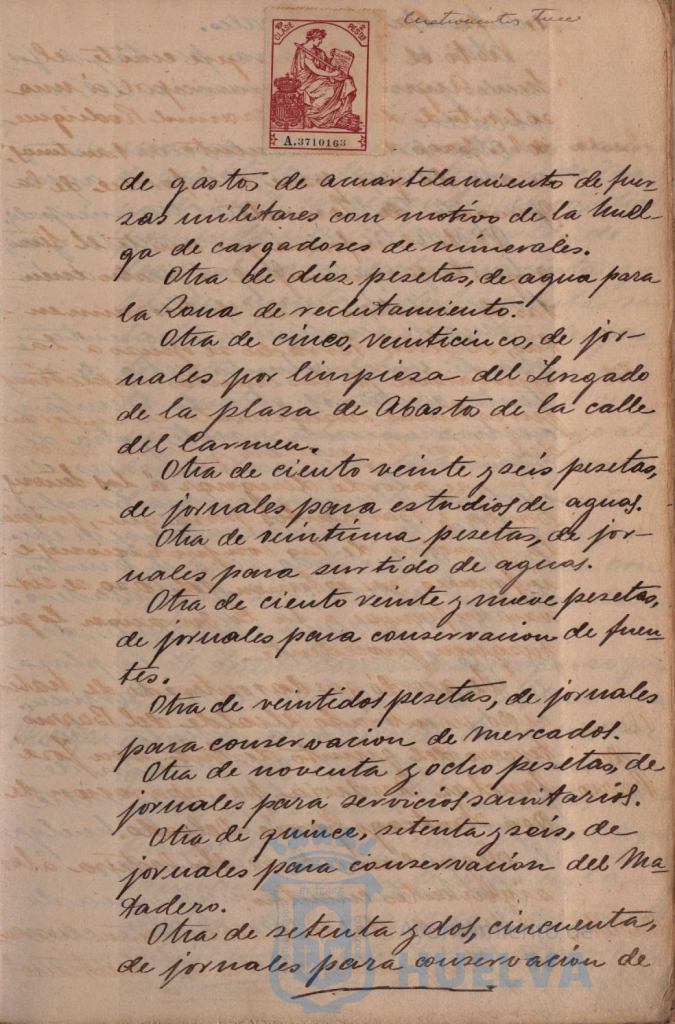 Cuatrocientos Trece
CLASE
PESETAS
A.3710163
de gastos de acuartelamiento de fuer-
zas militares con motivo de la huel-
ga de cargadores de minerales.
Otra de diez pesetas, de agua para
la Zona de reclutamiento.
Otra de cinco, veinticinco, de jor-
nales por limpieza del Juzgado
de la plaza de Abasto de la calle
del Carmen.
Otra de ciento veinte y seis pesetas,
de jornales para estudios de aguas.
Otra de veintiuna pesetas, de jor-
nales para surtido de aguas.
Otra de ciento veinte y nueve pesetas,
de jornales para conservacion de fuen-
tes.
Otra de veintidos pesetas, de jornales
para conservacion de Mercados.
Otra de noventa y ocho pesetas, de
jornales para servicios sanitarios.
Otra de quince, setenta y seis, de
jornales para conservacion del Ma-
tadero.
Otra de setenta y dos, cincuenta,
de jornales para conservación de
HUELVA